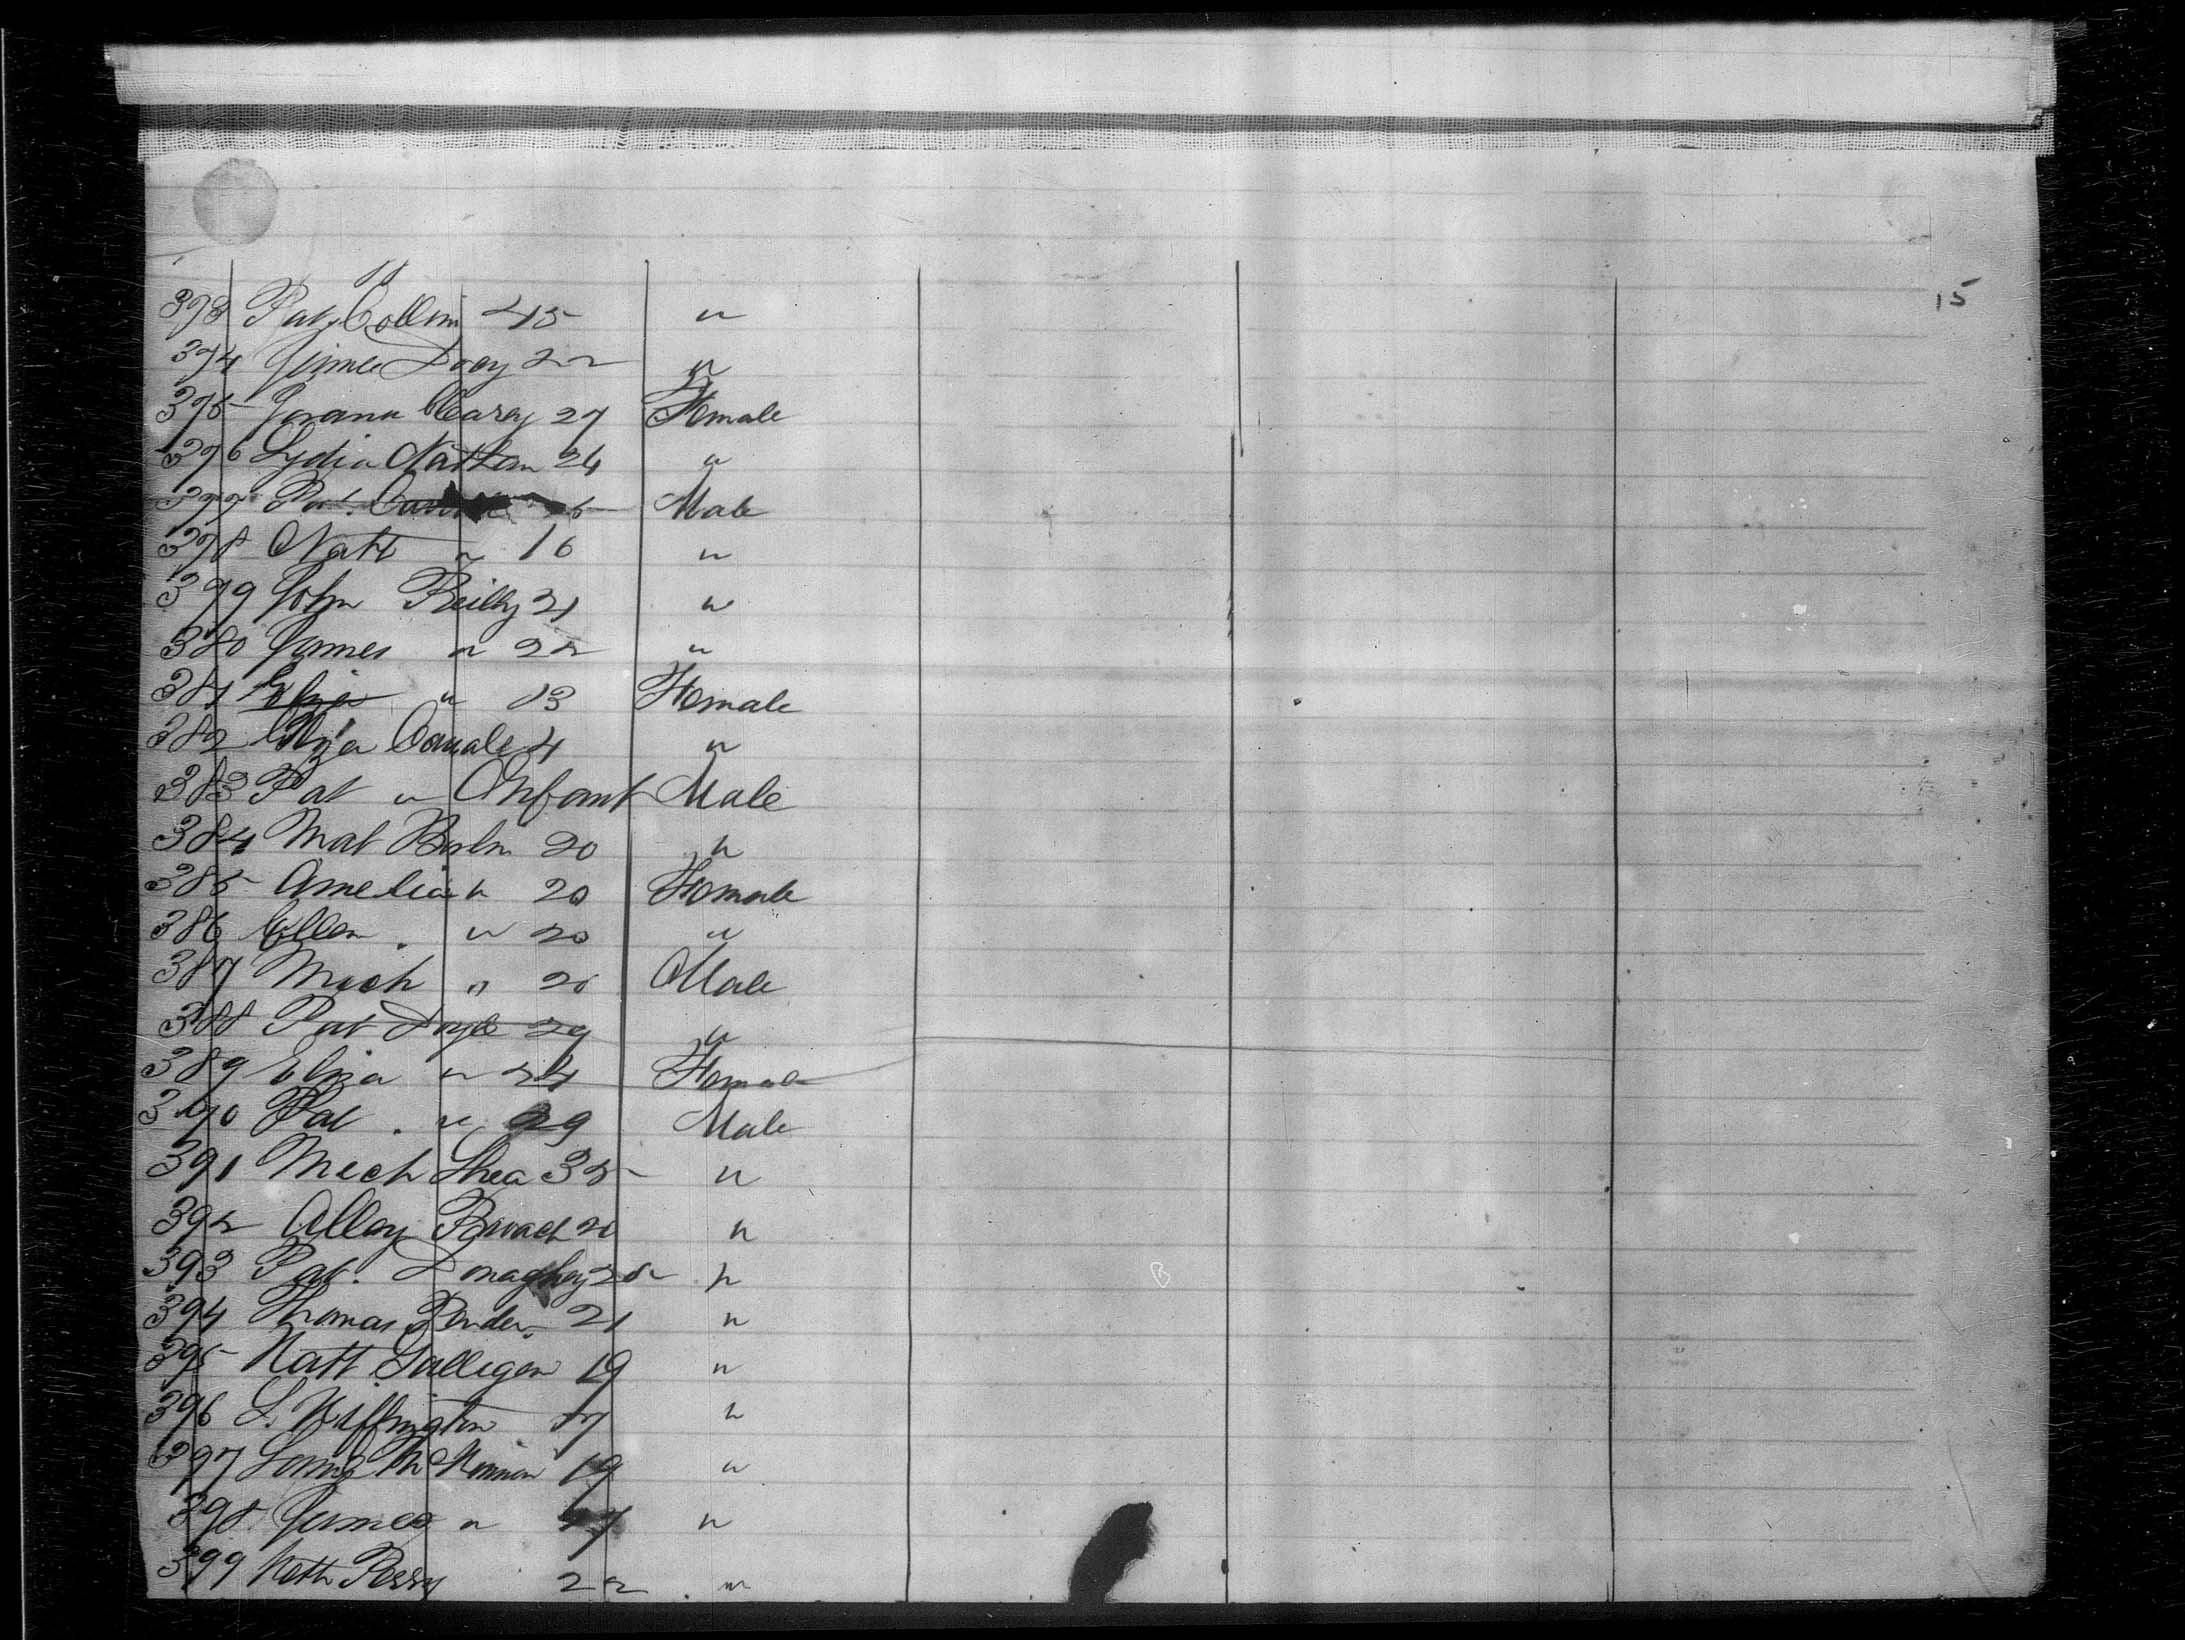 " "
15
373 Pat Collin 45 "
374 James Doey 22 "
375 Joana Cleary 27 Female
376 Lydia Nathan 24 "
377 Pat. 5 Male
378 Natt " 16 "
379 John Reilly 21 "
380 James " 22 "
381 Eliza " 13 Female
382 Eliza 4 "
383 Pat " Infant Male
384 Mat 20 "
385 Amelia " 20 Female
386 Ellen " 20 "
387 Mich " 20 Male
388 Pat Doyle 29 "
389 Eliza " 24 Female
390 Pat " 29 Male
391 Mich Shea 35 "
392 20 "
393 Pat. Donaghey "
394 Thomas Pender 21 "
395 Natt Galligan 19 "
396 L. Niffington 17 "
397 19 "
398 James " "
399 Perry 22 "